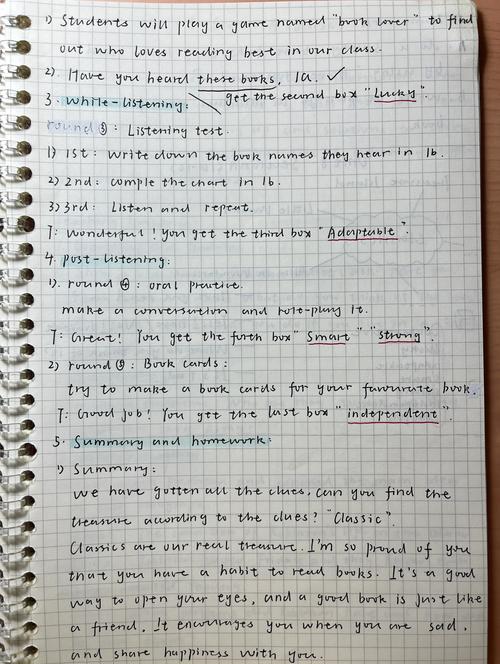 1) Students will play a game named "book lover" to find
out who loves reading best in our class.
2). Have you heard these books. 1a. ✓
3. while-listening: get the second box "Lucky".
round ③: Listening test.
1) 1st: write down the book names they hear in 1b.
2) 2nd: comple the chart in 1b.
3) 3rd: Listen and repeat.
T: wonderful! You get the third box "Adaptable".
4. post-listening:
1). round ④: oral practice.
make a conversation and role-play it.
T: Great! You get the forth box "Smart" "strong".
2) round ⑤: Book cards:
try to make a book cards for your favourate book.
T: Good job! You get the last box "independent".
5. Summary and homework:
1) Summary:
we have gotten all the clues, can you find the
treasure according to the clues? "Classic".
Classics are our real treasure. I'm so proud of you
that you have a habit to read books. It's a good
way to open your eyes, and a good book is just like
a friend. It encourages you when you are sad,
and share happiness with you.